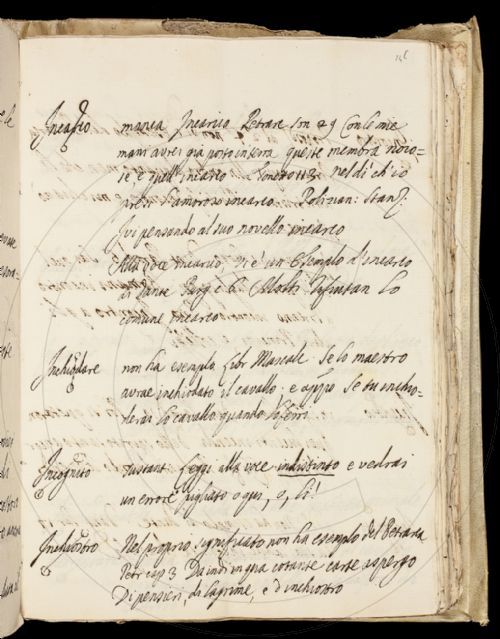 Incarco manca Incarico Petrarc son 29 Con le mie
mani avrei già posto in terra queste membra noio-
se, e quell' incarco. Sonetto 113. nel dì ch'io
presi l'amoroso incarco. Polizian: Stanz:
Ivi pensando al suo novello incarco
Alla voce Incarico vi è un Esemplo d'incarco
di Dante Purg e 6. Molti rifiutan lo
comune incarco
Inchiodare non ha esempio. Libr Mascalc. Se lo maestro
avrae inchiodato il cavallo. e appo Se tu inchio-
derai lo cavallo quando lo ferri
Incognito sustant. Leggi alla voce indistinto e vedrai
un errore pigliato o qui, o, lì.
Inchiostro Nel proprio significato non ha esempio del Petrarca
Petr cap 3 Da indi in qua cotante carte aspergo
Di pensieri, di lagrime, e d'inchiostro